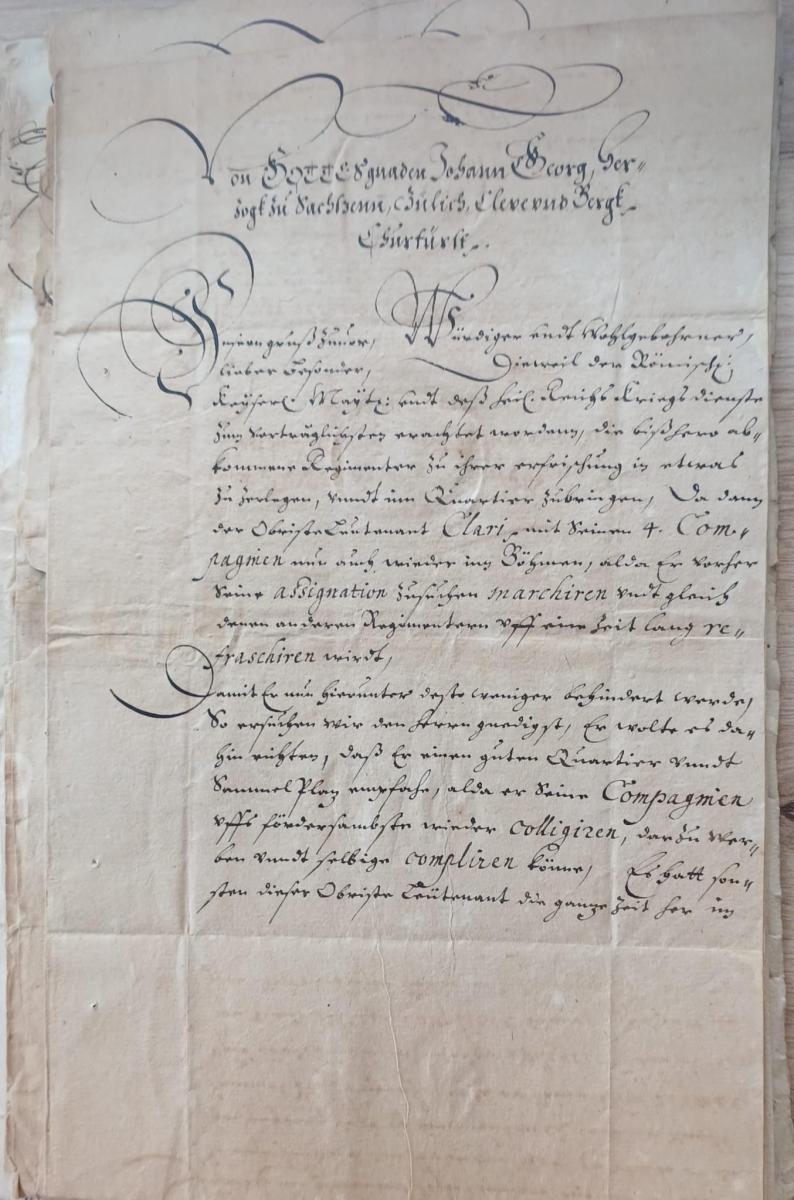 Von GOTTES gnaden Johann Georg, Her-
zogk zu Sachßenn, Jülich, Cleve vnd Bergk
Churfürst.
Unsern gruß zuvor, Würdiger undt Wohlgebohrner,
lieber besonder, Dieweil der Römisch:
Keyserl: Maytt: undt deß heil: Reichs Kriegs dienste
zum vorträglichsten erachtet wordenn, die bißhero ab-
kommene Regimenter zu ihrer erfrischung in etwas
zu zerlegen, vnndt inn Quartier zubringen, Da dann
der Obriste Leutenant Clari, mit Seinen 4. Com-
pagnien nun auch wieder inn Böhmen, alda Er vorher
Seine assignation zusuchen marchiren vndt gleich
denen anderen Regimentern vff eine Zeit lang re-
fraschiren wirdt,
Damit Er nun hierunter desto weniger behindert werde,
So ersuchen wir den Herrn gnedigst, Er wolte es da-
hin richten, daß Er einen guten Quartier vnndt
Sammel Plaz empfahe, alda er Seine Compagnien
vffs fördersambste wieder colligiren, darzu wer-
ben vnndt selbige compliren könne, Es hatt son-
sten dieser Obriste Leütenant die ganze Zeit her im